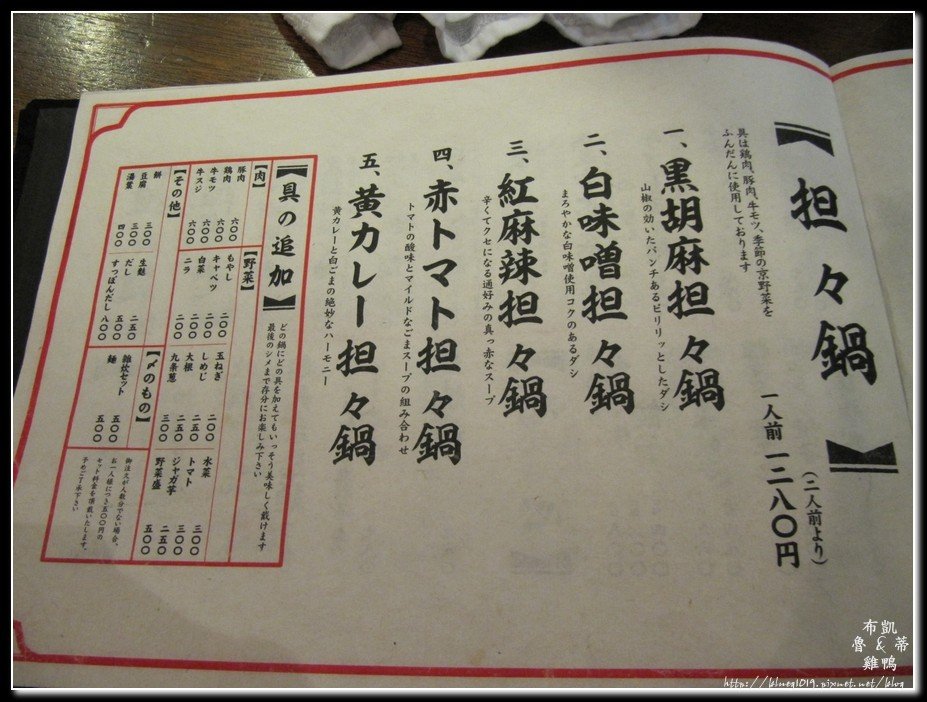 担々鍋
(二人前より)
一人前 一二八〇円
具は鶏肉、豚肉、牛モツ、季節の京野菜を
ふんだんに使用しております
一、黒胡麻担々鍋
山椒の効いたパンチあるピリリッとしたダシ
二、白味噌担々鍋
まろやかな白味噌使用コクのあるダシ
三、紅麻辣担々鍋
辛くてクセになる通好みの真っ赤なスープ
四、赤トマト担々鍋
トマトの酸味とマイルドなごまスープの組み合わせ
五、黄カレー担々鍋
黄カレーと白ごまの絶妙なハーモニー
【具の追加】
どの鍋にどの具を加えてもいっそう美味しく戴けます
最後のシメまで存分にお楽しみ下さい
【肉】
豚肉 六〇〇
鶏肉 六〇〇
牛モツ 六〇〇
牛スジ 六〇〇
【野菜】
もやし 二〇〇
キャベツ 二〇〇
白菜 二〇〇
ニラ 二〇〇
玉ねぎ 二〇〇
しめじ 二五〇
大根 二五〇
九条葱 三〇〇
水菜 三〇〇
トマト 三〇〇
ジャガ芋 二五〇
野菜盛 五五〇
【その他】
餅 三〇〇
豆腐 三〇〇
湯葉 四〇〇
生麩 二五〇
だし 五〇〇
すっぽんだし 八〇〇
【〆のもの】
雑炊セット 五〇〇
麺 五〇〇
御注文が人数分でない場合、
お一人様につき五〇〇円の
セット料金を頂戴いたします。
予めご了承下さい
布凱
魯&蒂
雞鴨
http://blueq1019.pixnet.net/blog